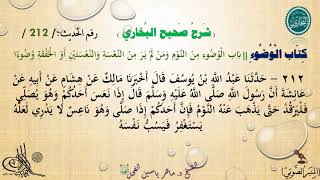 ( شَرحُ صَحيح البُخَاري ) رقم الحَديث: / 212 /
كِتَابُ الْوُضُوءِ || بَابُ الْوُضُوءِ مِنَ النَّوْمِ وَمَنْ لَمْ يَرَ مِنَ النَّعْسَةِ وَالنَّعْسَتَيْنِ أَوْ الْخَفْقَةِ وُضُوءًا
٢١٢ – حَدَّثَنَا عَبْدُ اللَّهِ بْنُ يُوسُفَ قَالَ أَخْبَرَنَا مَالِكٌ عَنْ هِشَامٍ عَنْ أَبِيهِ عَنْ
عَائِشَةَ أَنَّ رَسُولَ اللَّهِ صَلَّى اللَّهُ عَلَيْهِ وَسَلَّمَ قَالَ إِذَا نَعَسَ أَحَدُكُمْ وَهُوَ يُصَلِّي
فَلْيَرْقُدْ حَتَّى يَذْهَبَ عَنْهُ النَّوْمُ فَإِنَّ أَحَدَكُمْ إِذَا صَلَّى وَهُوَ نَاعِسٌ لَا يَدْرِي لَعَلَّهُ
يَسْتَغْفِرُ فَيَسُبُّ نَفْسَهُ
د. ماهر ياسين الفحل